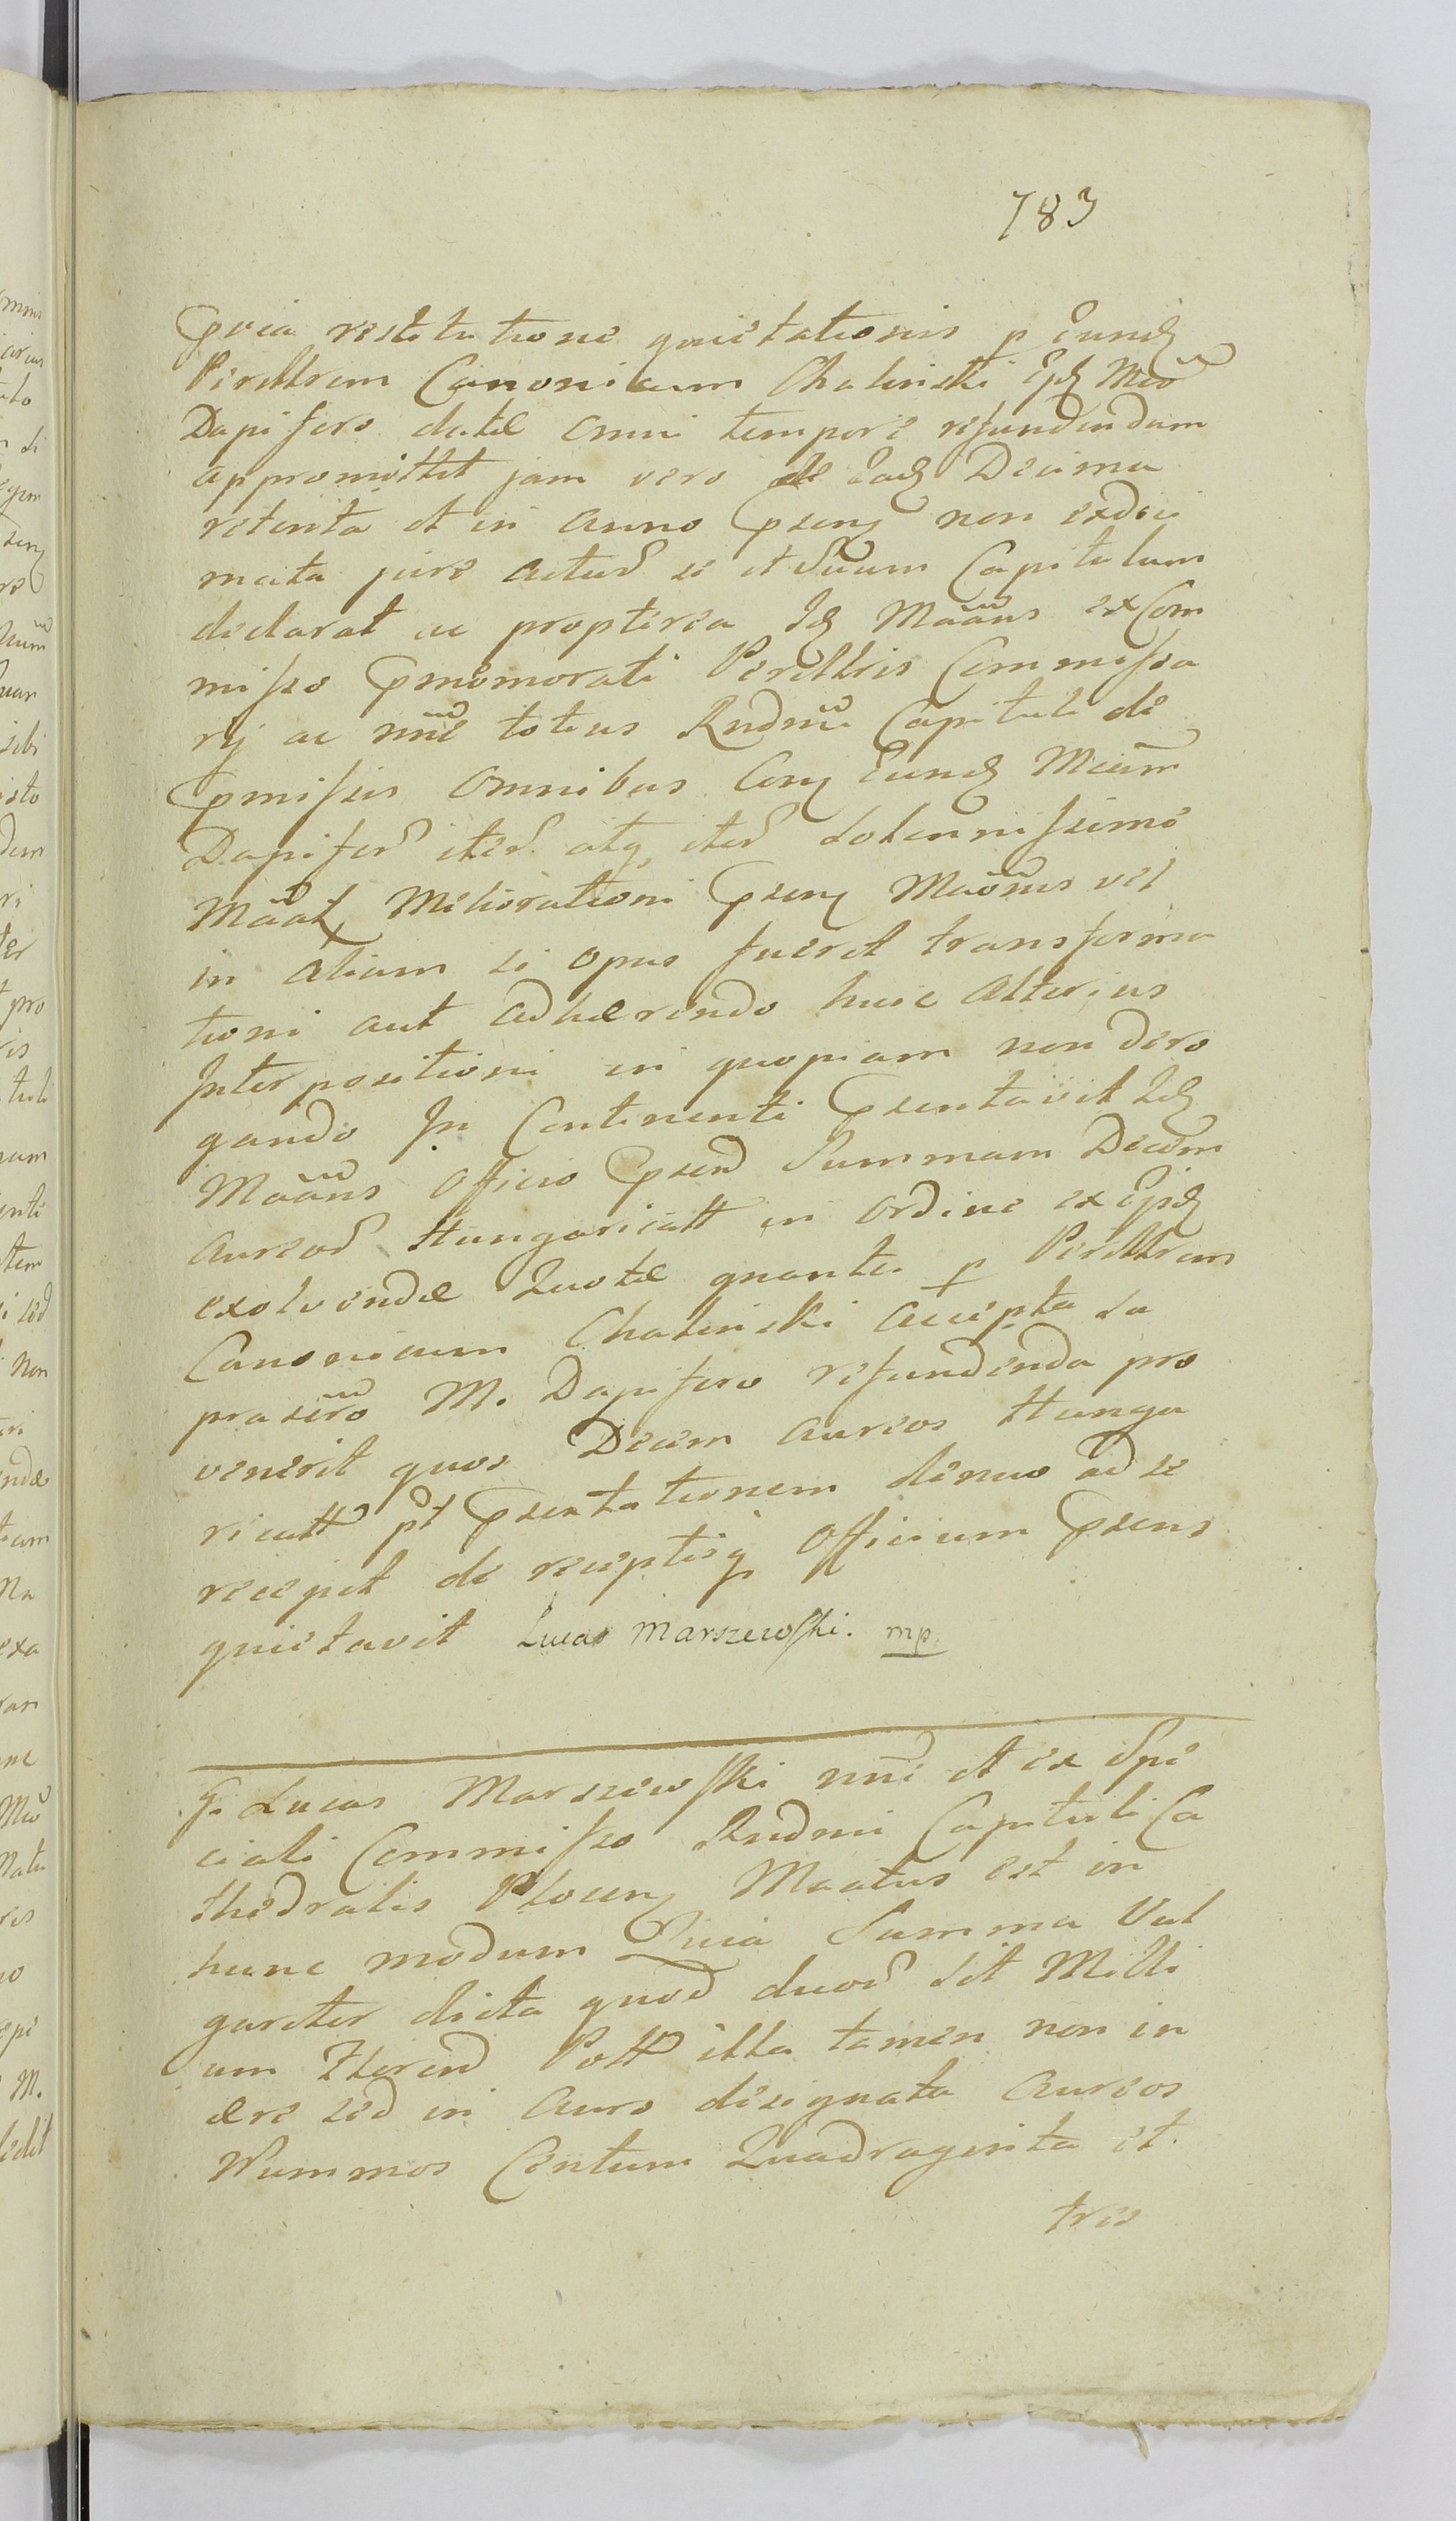 783
Pvia restitutione quietationis p Eund
Perilltrem Canonicum Chalinski Ejd Mco
Dapifero datæ omni tempore refundendam
appromittit jam vero de Ead Decima
retenta et in Anno Psenj non exdeci
mata jure acturũ se et Suum Capitulum
declarat ac propterea Id Maãns ex Com
misso Pmemorati Perilltris Commissa
rij ac nnẽ totius Rndmi Capituli de
Pmissis omnibus Conj Eund Mcũm
Dapiferũ iterũ atq iterũ Solennissime
Mãat, Meliorationi Psenj Maõnis vel
in Aliam si opus fuerit transforma
tioni aut adhærendo huic Alterius
Interpositioni in quopiam non dero
gando In Continenti Psentavit Id
Maãns Officio Psenti Summam Decem
Aureorũ Hungaricall in ordine ex Ejd
exolvendæ Quotæ quanta p Perilltrem
Canonicum Chalinski Accepta La
praserõ M. Dapifero refundenda pro
venerit quos Decem Aureos Hunga
ricall pt Psentationem denuo ad se
recepit de receptisq Officium Psens
quietavit Lucas Marszewski. mp.
G. Lucas Marszewski nnẽ et ex Spe
ciali Commisso Rndmi Capituli Ca
thedralis Plocenj Maatus est in
hunc modum Quia Summa Vul
gariter dicta quod duorũ sit Milli
um Floren Poll illa tamen non in
ære sed in Auro designata Aureos
Nummos Centum Quadraginta et
tres